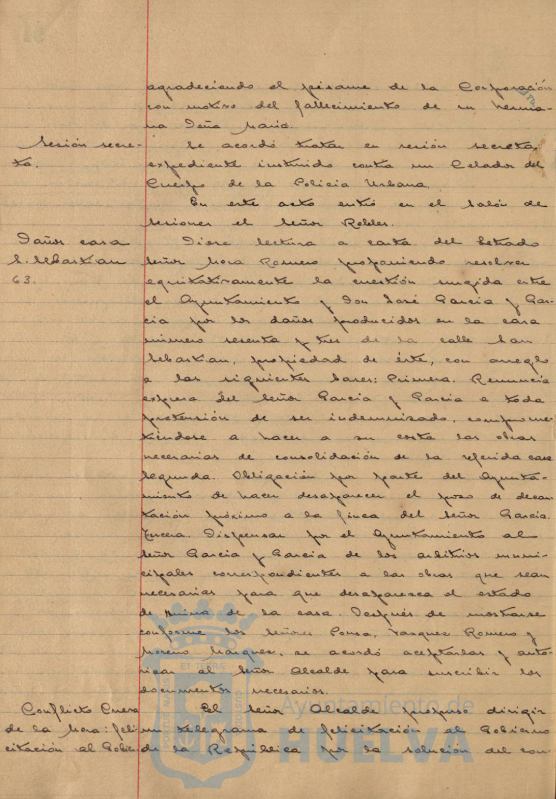 agradeciendo el pésame de la Corporación
con motivo del fallecimiento de su herma-
na Doña María.
Sesión secre-
ta.
Se acordó tratar en sesión secreta,
expediente instruido contra un Celador del
Cuerpo de la Policía Urbana.
En este acto entró en el Salón de
sesiones el Señor Robles.
Daños casa
S. Sebastian
63.
Diose lectura a carta del Letrado
Señor Mora Romero proponiendo resolver
equitativamente la cuestión surgida entre
el Ayuntamiento y Don José García y Gar-
cia por los daños producidos en la casa
número sesenta y tres de la calle San
Sebastian, propiedad de éste, con arreglo
a las siguientes bases: Primera. Renuncia
expresa del Señor García y García a toda
pretensión de ser indemnizado, comprome-
tiéndose a hacer a su costa las obras
necesarias de consolidación de la referida casa
Segunda. Obligación por parte del Ayunta-
miento de hacer desaparecer el pozo de decan-
tación próximo a la finca del Señor García.
Tercera. Dispensar por el Ayuntamiento al
Señor García y García de los arbitrios muni-
cipales correspondientes a las obras que sean
necesarias para que desaparezca el estado
de ruina de la casa. Después de mostrarse
conforme los Señores Ponsa, Vazquez Romero y
Moreno Marquez, se acordó aceptarlas y auto-
rizar al Señor Alcalde para suscribir los
documentos necesarios.
Conflicto Cuenca
de la Mora: feli-
citación al Gobier-
El Señor Alcalde propuso dirigir
un telegrama de felicitación al Gobierno
de la República por la solución del con-
Ayuntamiento de
HUELVA